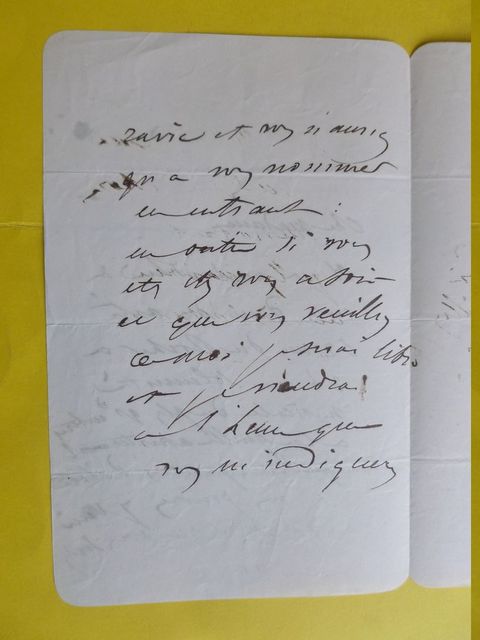 ravie et vous n'aurez
qu'a vous nommer
en entrant :
en outre si vous
etes chez vous a soir
et que vous veuillez
de moi je serai libre
et je viendrai
a l'heure que
vous m'indiquerez